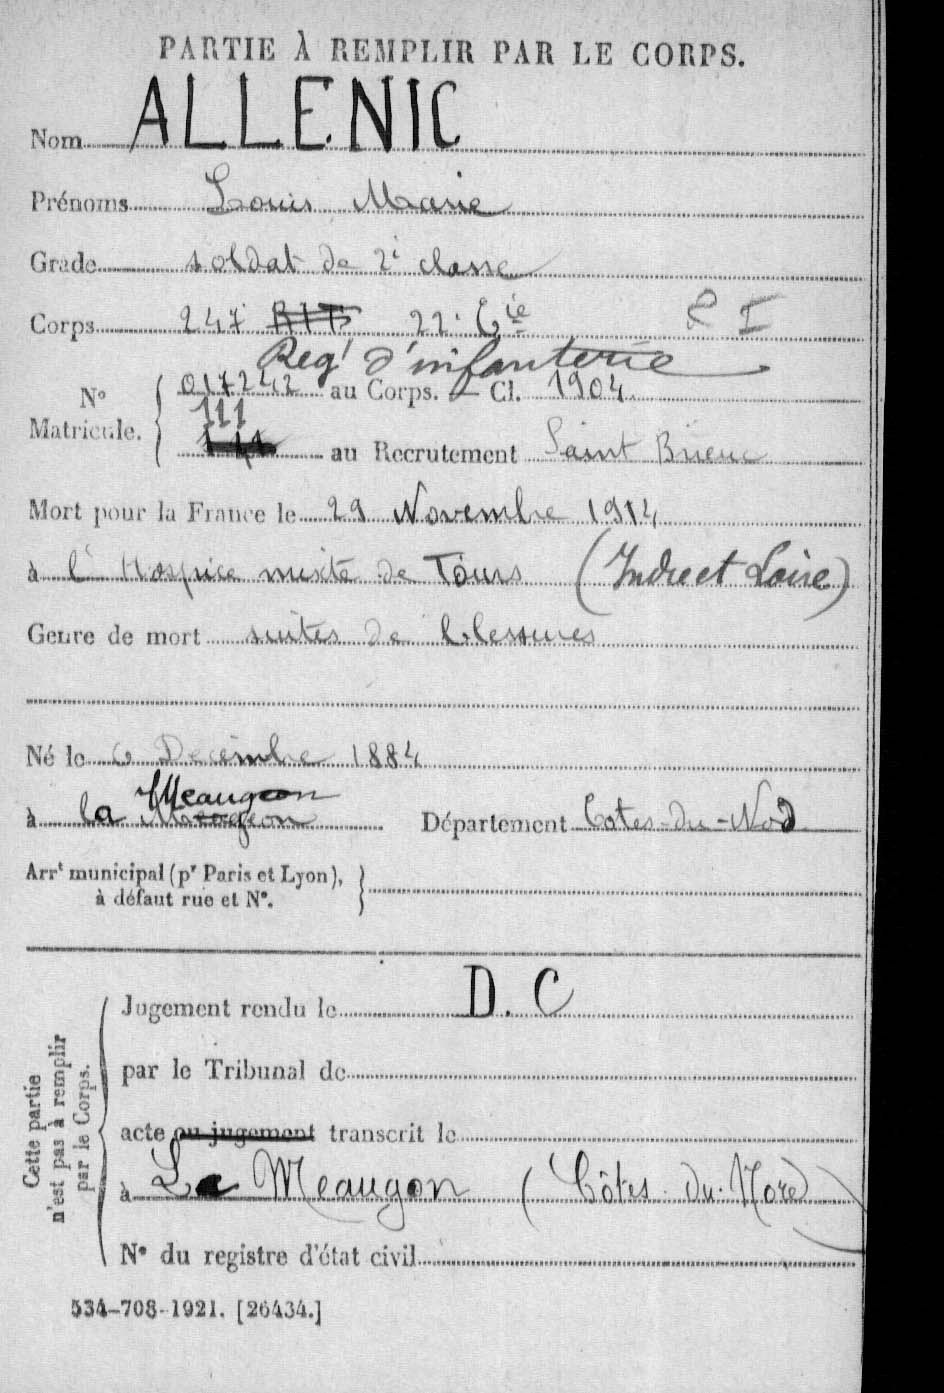 PARTIE À REMPLIR PAR LE CORPS.
Nom ALLENIC
Prénoms Louis Marie
Grade soldat de 2e classe
Corps 247 RIT 22e Cie R I
Regt d'infanterie
N° Matricule. 017242 au Corps. — Cl. 1904
111
141 au Recrutement Saint Brieuc
Mort pour la France le 29 Novembre 1914
à l'Hospice mixte de Tours (Indre et Loire)
Genre de mort suites de blessures
Né le 6 Decembre 1884
Meaugon
à la Meogeon Département Cotes-du-Nod
Arrt municipal (pr Paris et Lyon),
à défaut rue et N°.
Cette partie n'est pas à remplir par le Corps.
Jugement rendu le D. C
par le Tribunal de
acte ou jugement transcrit le
à La Meaugon (Côtes-du-Nord)
N° du registre d'état civil
534-708-1921. [26434.]